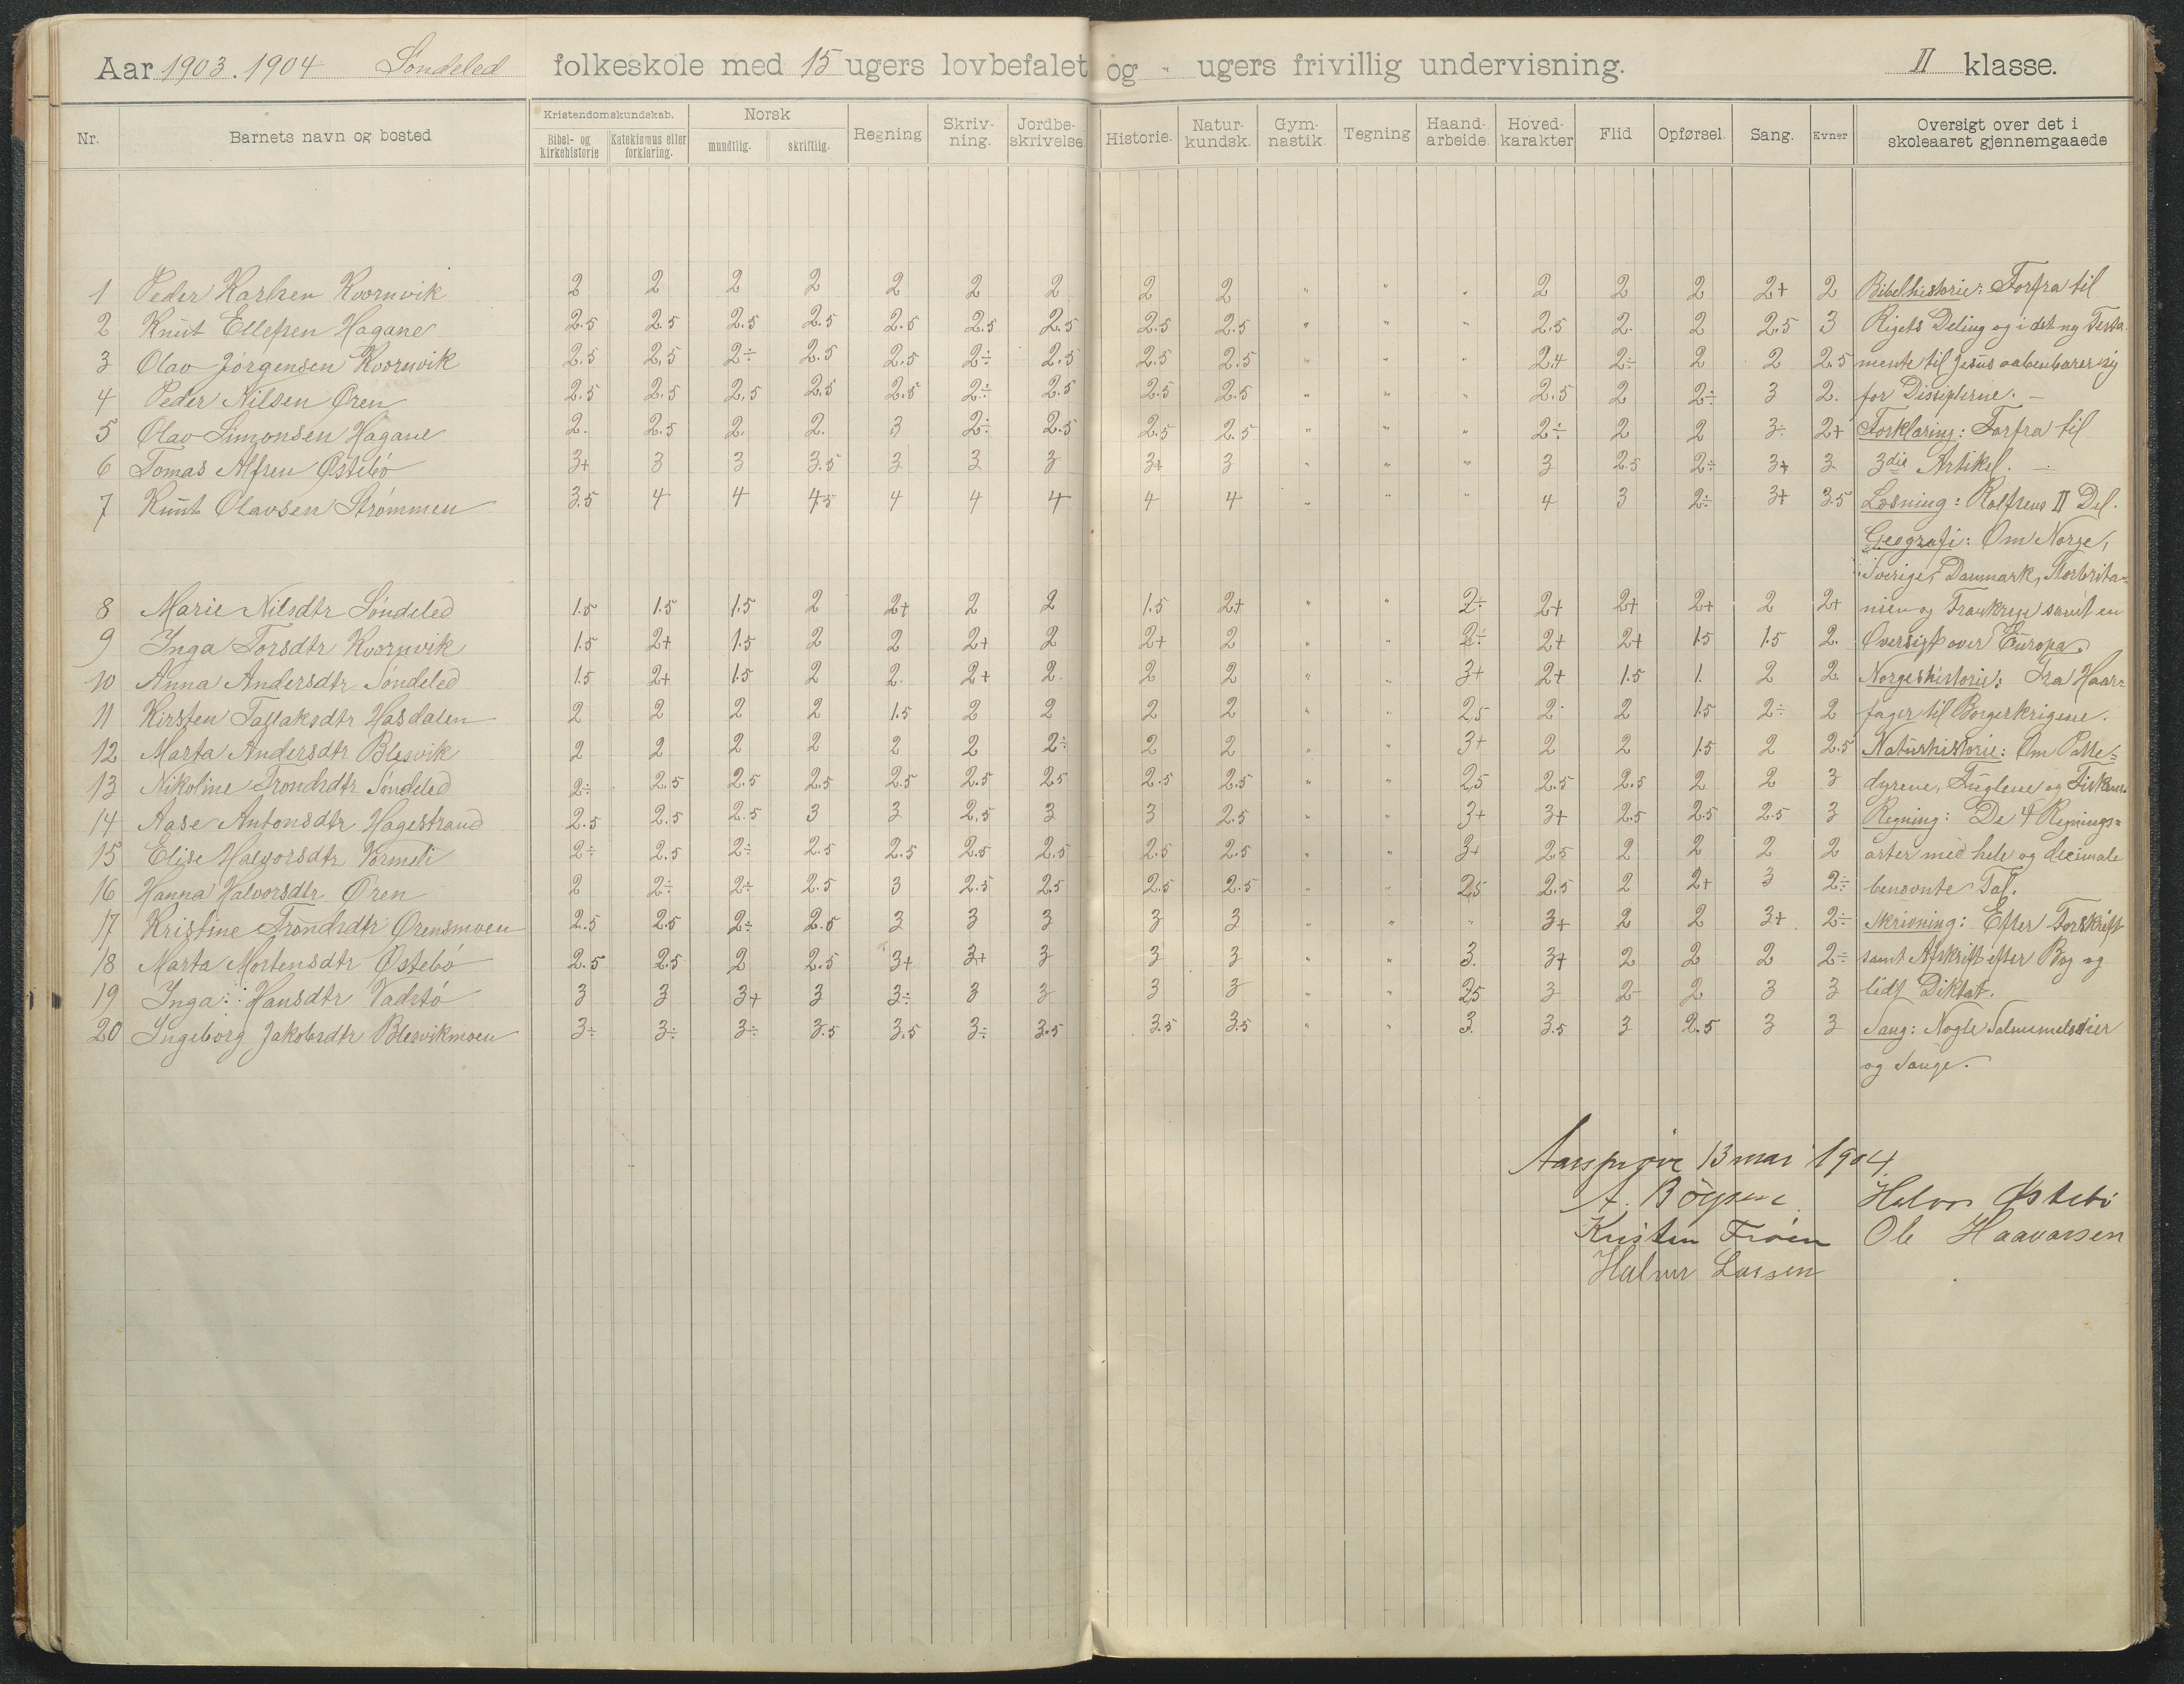 Aar 1903.1904 Søndeled folkeskole med 15 ugers lovbefalet og - ugers frivillig undervisning. II klasse.
Nr. Barnets navn og bosted Kristendomskundskab. Bibel- og kirkehistorie Katekismus eller forklaring. Norsk mundtlig. skriftlig. Regning Skriv-ning. Jordbe-skrivelse Historie. Natur-kundsk. Gym-nastik Tegning Haand-arbeide Hoved-karakter Flid Opførsel. Sang. Evner Oversigt over det i skoleaaret gjennemgaaede
1 Peder Karlsen Kvornvik 2 2 2 2 2 2 2 2 2 " " " 2 2 2 2+ 2 Bibelhistorie: Forfra til
2 Knut Ellefsen Hagane 2.5 2.5 2.5 2.5 2.5 2.5 2.5 2.5 2.5 " " " 2.5 2. 2 2.5 3 Rigets Deling og i det ny Testa-
3 Olav Jørgensen Kvornvik 2.5 2.5 2÷ 2.5 2.5 2÷ 2.5 2.5 2.5 " " " 2.4 2÷ 2 2 2.5 mente til Jesus aabenbarer sig
4 Peder Nilsen Øren 2.5 2.5 2.5 2.5 2.5 2÷ 2.5 2.5 2.5 " " " 2.5 2 2÷ 3 2. for Disiplerne. –
5 Olav Simonsen Hagane 2. 2.5 2. 2. 3 2÷ 2.5 2.5 2.5 " " " 2÷ 2 2 3÷ 2+ Forklaring: Forfra til
6 Tomas Alfren Østebø 3+ 3 3 3.5 3 3 3 3+ 3 " " " 3 2.5 2÷ 3+ 3 3die Artikel. –
7 Knut Olavsen Strømmen 3.5 4 4 4.5 4 4 4 4 4 " " " 4 3 2÷ 3+ 3.5 Læsning: Rolfsens II Del.
Geografi: Om Norge,
Sverige, Danmark, Storbrita-
8 Marie Nilsdtr Søndeled 1.5 1.5 1.5 2 2+ 2 2 1.5 2+ " " 2÷ 2+ 2+ 2+ 2 2+ nien og Frankrige samt en
9 Inga Torsdtr Kvornvik 1.5 2+ 1.5 2 2 2+ 2 2+ 2 " " 2÷ 2+ 2+ 1.5 1.5 2. Oversigt over Europa.
10 Anna Andersdtr Søndeled 1.5 2+ 1.5 2 2. 2+ 2. 2 2 " " 3+ 2+ 1.5 1. 2 2. Norgeshistorie: Fra Haar-
11 Kirsten Taflaksdtr Hasdalen 2 2 2 2 1.5 2 2 2 2 " " 2.5 2 2 1.5 2÷ 2 fager til Borgerkrigene.
12 Marta Andersdtr Blesvik 2 2 2 2 2 2 2÷ 2 2 " " 3+ 2 2 1.5 2 2.5 Naturhistorie: Om Patte-
13 Nikoline Trondsdtr Søndeled 2÷ 2.5 2.5 2.5 2.5 2.5 2.5 2.5 2.5 " " 2.5 2.5 2.5 2 2 3 dyrene, Fuglene og Fiskene.
14 Aase Antonsdtr Hagestrand 2.5 2.5 2.5 3 3 2.5 3 3 2.5 " " 3+ 3+ 2.5 2.5 2.5 3 Regning: De 4 Regnings-
15 Elise Halvorsdtr Vormeli 2÷ 2.5 2÷ 2.5 2.5 2.5 2.5 2.5 2.5 " " 3+ 2.5 2 2 2 2 arter med hele og decimale
16 Hanna Halvorsdtr Øren 2 2÷ 2÷ 2.5 3 2.5 2.5 2.5 2.5 " " 2.5 2.5 2 2+ 3 2÷ benævnte Tal.
17 Kristine Trondsdtr Ørensmoen 2.5 2.5 2÷ 2.5 3 3 3 3 3 " " " 3+ 2 2 3+ 2÷ Skrivning: Efter Forskrift
18 Marta Mortensdtr Østebø 2.5 2.5 2 2.5 3+ 3+ 3 3 3 " " 3. 3+ 2 2 2 2÷ samt Afskrift efter Bog og
19 Inga Hansdtr Vadstø 3 3 3+ 3 3÷ 3 3 3 3 " " 2.5 3 2 2 3 3 lidt Diktat.
20 Ingeborg Jakobsdtr Blesvikmoen 3÷ 3÷ 3÷ 3.5 3.5 3÷ 3.5 3.5 3.5 " " 3. 3.5 3 2.5 3 3 Sang: Nogle Salmemelodier
og Sange.
Aarsprøve 13 mai 1904.
A. Bøysen Halvor Østebø
Kristen Frøen Ole Haavorsen
Halvor Larsen